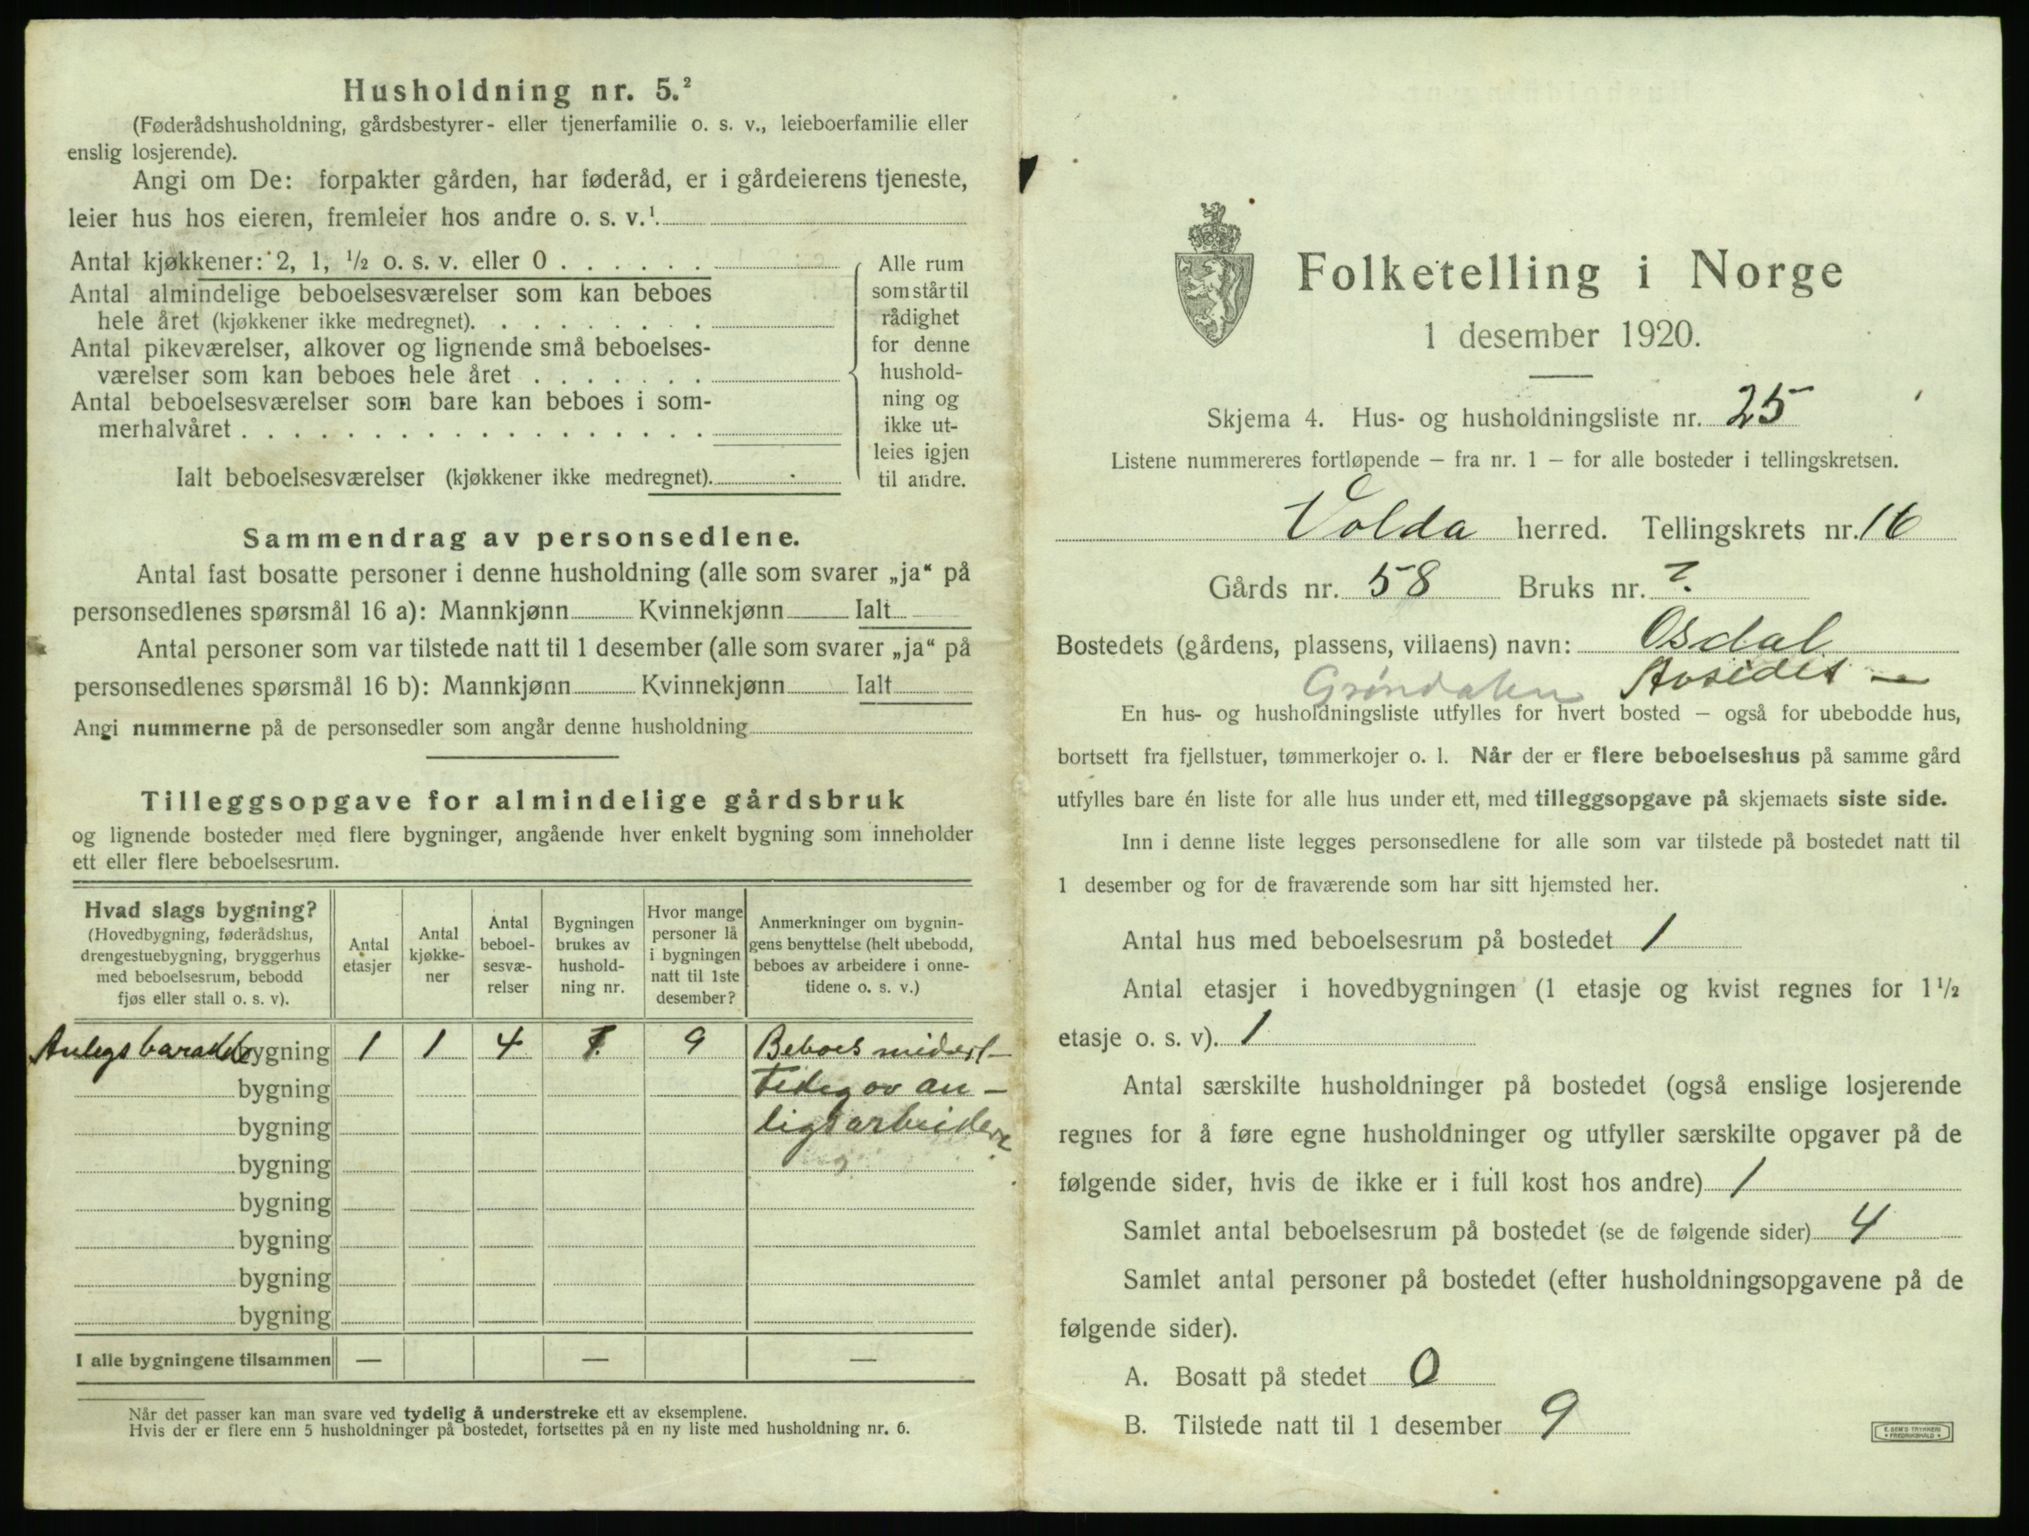 Husholdning nr. 5.²
(Føderådshusholdning, gårdsbestyrer- eller tjenerfamilie o. s. v., leieboerfamilie eller
enslig losjerende).
Angi om De: forpakter gården, har føderåd, er i gårdeierens tjeneste,
leier hus hos eieren, fremleier hos andre o. s. v.¹
Antal kjøkkener: 2, 1, ½ o. s. v. eller 0 . . . . . .
Antal almindelige beboelsesværelser som kan beboes
hele året (kjøkkener ikke medregnet). . . . . . . .
Antal pikeværelser, alkover og lignende små beboelses-
værelser som kan beboes hele året . . . . . . .
Antal beboelsesværelser som bare kan beboes i som-
merhalvåret . . . . . . . . . . . . . . . . . .
Ialt beboelsesværelser (kjøkkener ikke medregnet).
Alle rum
som står til
rådighet
for denne
hushold-
ning og
ikke ut-
leies igjen
til andre.
Sammendrag av personsedlene.
Antal fast bosatte personer i denne husholdning (alle som svarer „ja“ på
personsedlenes spørsmål 16 a): Mannkjønn Kvinnekjønn Ialt
Antal personer som var tilstede natt til 1 desember (alle som svarer „ja“ på
personsedlenes spørsmål 16 b): Mannkjønn Kvinnekjønn Ialt
Angi nummerne på de personsedler som angår denne husholdning
Tilleggsopgave for almindelige gårdsbruk
og lignende bosteder med flere bygninger, angående hver enkelt bygning som inneholder
ett eller flere beboelsesrum.
Hvad slags bygning?
(Hovedbygning, føderådshus,
drengestuebygning, bryggerhus
med beboelsesrum, bebodd
fjøs eller stall o. s. v).
Antal
etasjer
Antal
kjøkke-
ner
Antal
beboel-
sesvæ-
relser
Bygningen
brukes av
hushold-
ning nr.
Hvor mange
personer lå
i bygningen
natt til 1ste
desember?
Anmerkninger om bygnin-
gens benyttelse (helt ubebodd,
beboes av arbeidere i onne-
tidene o. s. v.)
bygning 1 1 4 1. 9 Beboes midlert-
bygning tidig av an-
bygning ligsarbeidere
bygning
bygning
bygning
bygning
bygning
I alle bygningene tilsammen — — —
Når det passer kan man svare ved tydelig å understreke ett av eksemplene.
Hvis der er flere enn 5 husholdninger på bostedet, fortsettes på en ny liste med husholdning nr. 6.
Folketelling i Norge
1 desember 1920.
Skjema 4. Hus- og husholdningsliste nr. 25
Listene nummereres fortløpende – fra nr. 1 – for alle bosteder i tellingskretsen.
Volda herred. Tellingskrets nr. 16
Gårds nr. 58 Bruks nr. ?
Bostedets (gårdens, plassens, villaens) navn: Osdal
Grøndalen Avsides
En hus- og husholdningsliste utfylles for hvert bosted – også for ubebodde hus,
bortsett fra fjellstuer, tømmerkojer o. l. Når der er flere beboelseshus på samme gård
utfylles bare én liste for alle hus under ett, med tilleggsopgave på skjemaets siste side.
Inn i denne liste legges personsedlene for alle som var tilstede på bostedet natt til
1 desember og for de fraværende som har sitt hjemsted her.
Antal hus med beboelsesrum på bostedet 1
Antal etasjer i hovedbygningen (1 etasje og kvist regnes for 1½
etasje o. s. v). 1
Antal særskilte husholdninger på bostedet (også enslige losjerende
regnes for å føre egne husholdninger og utfyller særskilte opgaver på de
følgende sider, hvis de ikke er i full kost hos andre) 1
Samlet antal beboelsesrum på bostedet (se de følgende sider) 4
Samlet antal personer på bostedet (efter husholdningsopgavene på de
følgende sider).
A. Bosatt på stedet 0
B. Tilstede natt til 1 desember 9
E. SEM'S TRYKKERI
FREDRIKSHALD